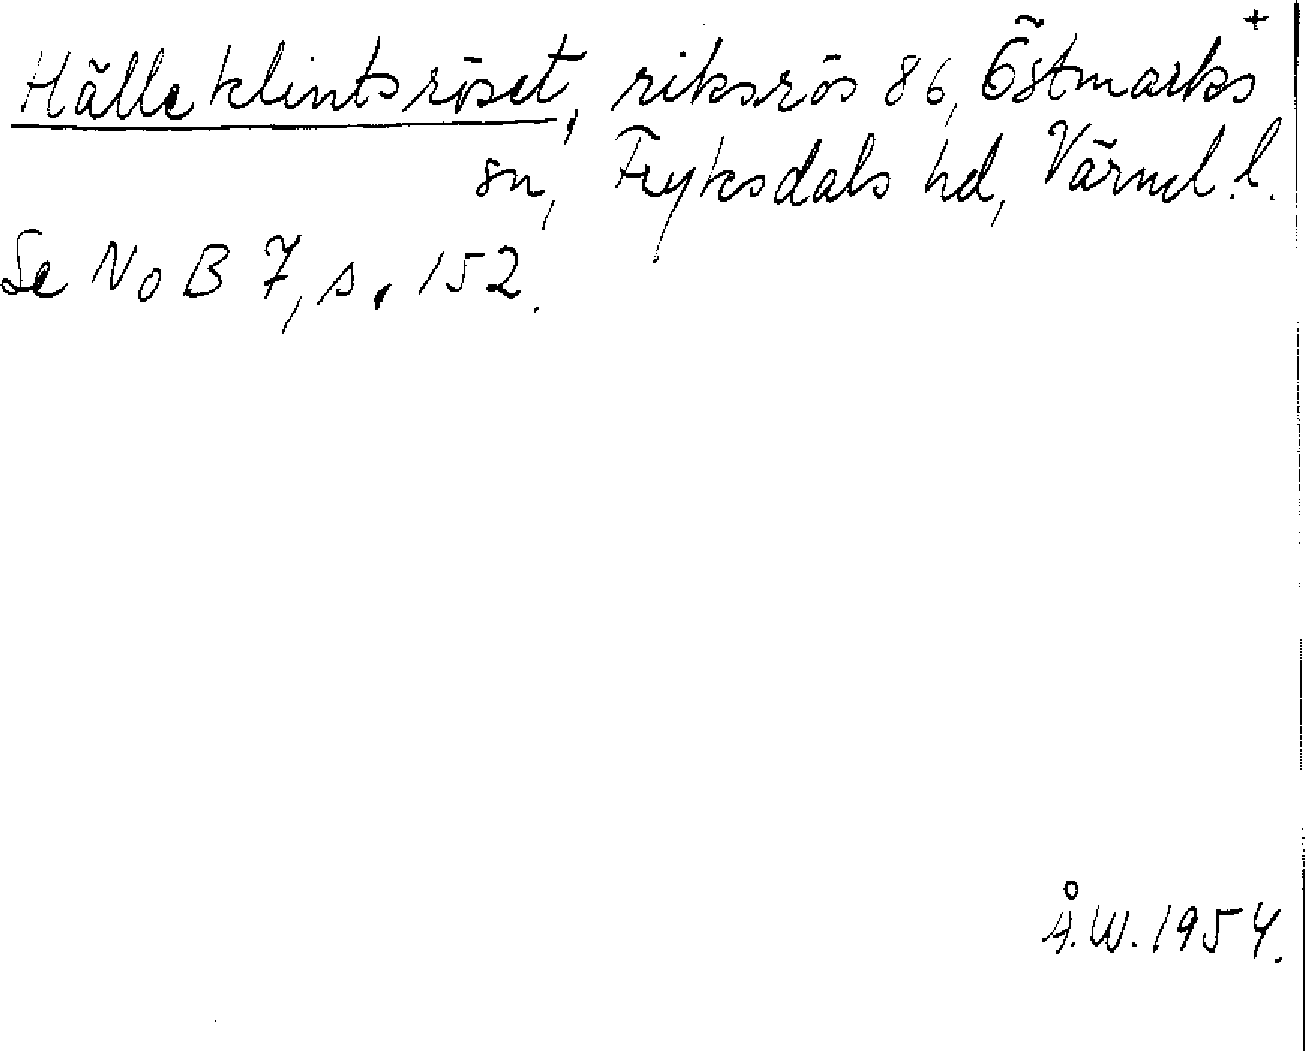 Hälleklintsröset, riksrös 86, Östmarks +
sn, Fryksdals hd, Värml. l.
Se NoB 7, s. 152.
Å.W. 1954.